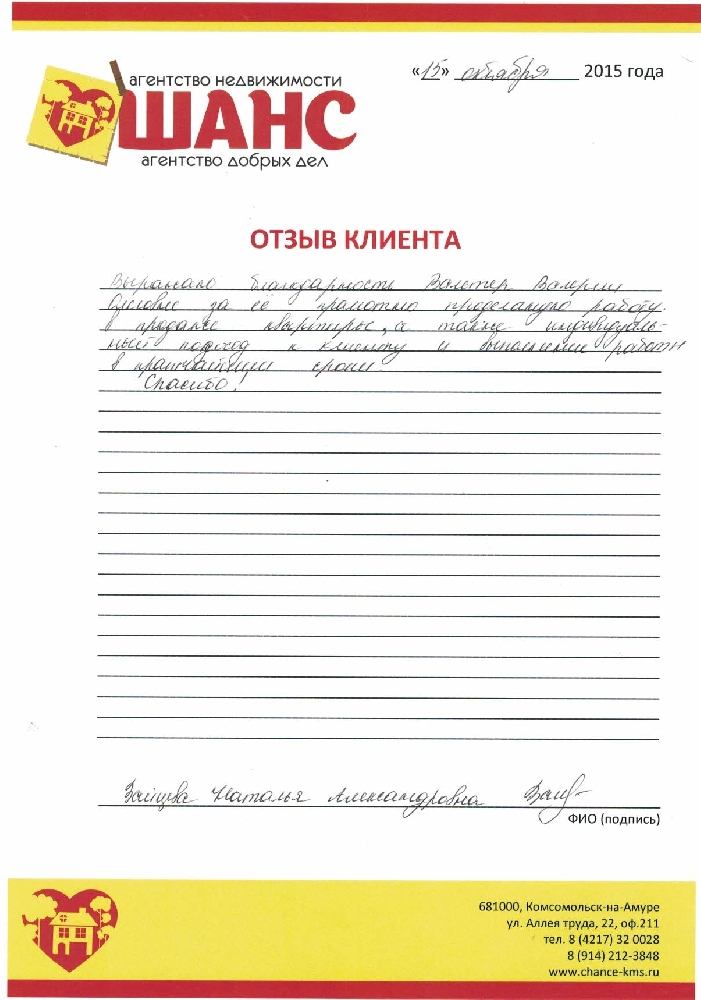 агентство недвижимости
ШАНС
агентство добрых дел
«15» октября 2015 года
ОТЗЫВ КЛИЕНТА
Выражаю благодарность Валерии
Олеговне за её грамотно проделанную работу
в продаже квартиры, а также индивидуаль-
ный подход к клиенту и выполнение работы
в кратчайшии сроки.
Спасибо!
Зайцева Наталья Александровна
ФИО (подпись)
681000, Комсомольск-на-Амуре
ул. Аллея труда, 22, оф.211
тел. 8 (4217) 32 0028
8 (914) 212-3848
www.chance-kms.ru